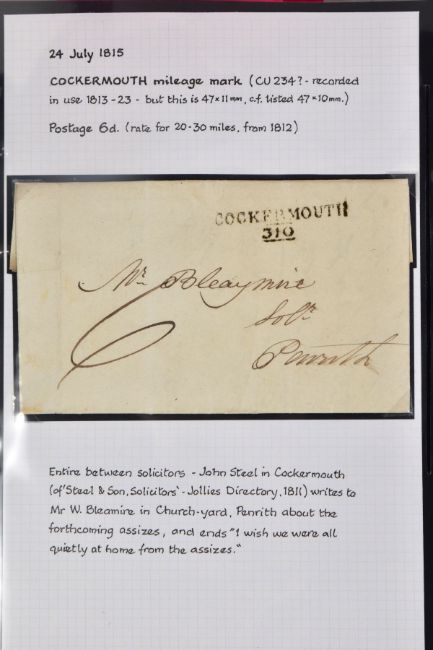 24 July 1815
COCKERMOUTH mileage mark (CU 234? - recorded
in use 1813-23 - but this is 47×11mm, c.f. listed 47×10mm.)
Postage 6d. (rate for 20-30 miles, from 1812)
COCKERMOUTH
310
Mr. Bleaymire
Solr.
Penrith
6
Entire between solicitors - John Steel in Cockermouth
(of 'Steel & Son, Solicitors' - Jollies Directory, 1811) writes to
Mr W. Bleamire in Church-yard, Penrith about the
forthcoming assizes, and ends "I wish we were all
quietly at home from the assizes."